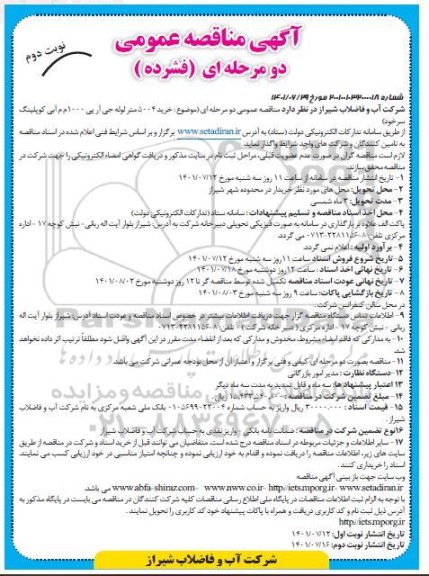 آگهی مناقصه عمومی
نوبت دوم
دو مرحله ای (فشرده)
شرکت آب و فاضلاب شیراز در نظر دارد مناقصه عمومی دو مرحله ای (موضوع: خرید ۵۰۰۴ متر لوله جی آر پی ۱۰۰۰ م م آبی کوپلینگ
سرخود)
از طریق سامانه تدارکات الکترونیکی دولت (ستاد) به آدرس www.setadiran.ir برگزار و بر اساس شرایط فنی اعلام شده در اسناد مناقصه
به تامین کنندگان و شرکت های واجد شرایط واگذار نماید.
لازم است مناقصه گران در صورت عدم عضویت قبلی، مراحل ثبت نام در سایت مذکور و دریافت گواهی امضاء الکترونیکی را جهت شرکت در
مناقصه محقق سازند.
۱- تاریخ انتشار مناقصه در سامانه از ساعت ۱۱ روز سه شنبه مورخ ۱۴۰۱/۰۷/۱۲
۲- محل تحویل: محل های مورد نظر خریدار در محدوده شهر شیراز
۳- مدت تحویل: ۳ ماه شمسی
۴- محل اخذ اسناد مناقصه و تسلیم پیشنهادات: سامانه ستاد (تدارکات الکترونیکی دولت)
پاکت الف علاوه بر بارگذاری در سامانه به صورت فیزیکی تحویلی دبیرخانه شرکت به آدرس: شیراز بلوار آیت اله ربانی - نبش کوچه ۱۷ - اداره
مرکزی تلفن ۸-۰۷۱۳-۲۲۸۱۱۵۶ می گردد.
۴- برآورد اولیه: اعلام نمی گردد.
۵- تاریخ شروع فروش اسناد ساعت ۱۱ روز سه شنبه مورخ ۱۴۰۱/۰۷/۱۲
۶- تاریخ نهائی اخذ اسناد: ساعت ۱۲ روز دوشنبه مورخ ۱۴۰۱/۰۷/۱۸
۷- تاریخ نهائی عودت اسناد مناقصه تکمیل شده توسط مناقصه گر تا ۱۲ روز دوشنبه مورخ ۱۴۰۱/۰۸/۰۲
۸- تاریخ بازگشایی پاکات: ساعت ۹ روز سه شنبه مورخ ۱۴۰۱/۰۸/۰۳
در محل سالن کنفرانس شرکت.
۹- اطلاعات تماس دستگاه مناقصه گزار جهت دریافت اطلاعات بیشتر در خصوص اسناد مناقصه و عودت اسناد آدرس: شیراز بلوار آیت اله
ربانی - نبش کوچه ۱۷ - اداره مرکزی (دبیرخانه شرکت) - تلفن ۸-۰۷۱۳-۲۲۸۱۱۵۶
۱۰- به مدارکی که فاقد امضاء، مشروط، مخدوش و مدارکی که بعد از انقضاء مدت مقرر در این آگهی واصل شود مطلقاً ترتیب اثر داده نخواهد
شد.
۱۱- مناقصه بصورت دو مرحله ای کیفی و فنی برگزار و اعتبار آن از محل بودجه عمرانی شرکت می باشد.
۱۲- دستگاه نظارت: مدیر امور بازرگانی
۱۳ اعتبار پیشنهاد ها: سه ماه و قابل تمدید به مدت سه ماه دیگر
۱۴- مبلغ تضمین شرکت در مناقصه:
۱۵- قیمت اسناد:
شیراز
۱۶ نوع تضمین شرکت در مناقصه: ضمانت نامه بانکی - واریز نقدی به حساب شرکت آب و فاضلاب شیراز
۱۷- سایر اطلاعات و جزئیات مربوطه در اسناد مناقصه درج شده است. متقاضیان می توانند قبل از خرید اسناد و شرکت در مناقصه از طریق
سایت های زیر، اطلاعات مناقصه را دریافت نموده و اقدام به خود ارزیابی نموده و چنانچه امتیاز مناسبی در خود ارزیابی کسب می نمایند
اسناد را خریداری کنند.
وب سایت جهت بازبینی آگهی مناقصه
www.abfa-shiraz.com www.nww.co.ir http://iets.mporg.ir www.setadiran.ir می باشد.
با توجه به الزام ثبت اطلاعات مناقصات در پایگاه ملی اطلاع رسانی مناقصات کلیه شرکت کنندگان در مناقصه می بایست در پایگاه مذکور به
آدرس ذیل ثبت نام و کد کاربری دریافت و همراه با پاکات پیشنهاد خود کد کاربری را تحویل نمایند.
http://iets.mporg.ir
تاریخ انتشار نوبت اول: ۱۴۰۱/۰۷/۱۲
تاریخ انتشار نوبت دوم: ۱۴۰۱/۰۷/۱۶
شرکت آب و فاضلاب شیراز